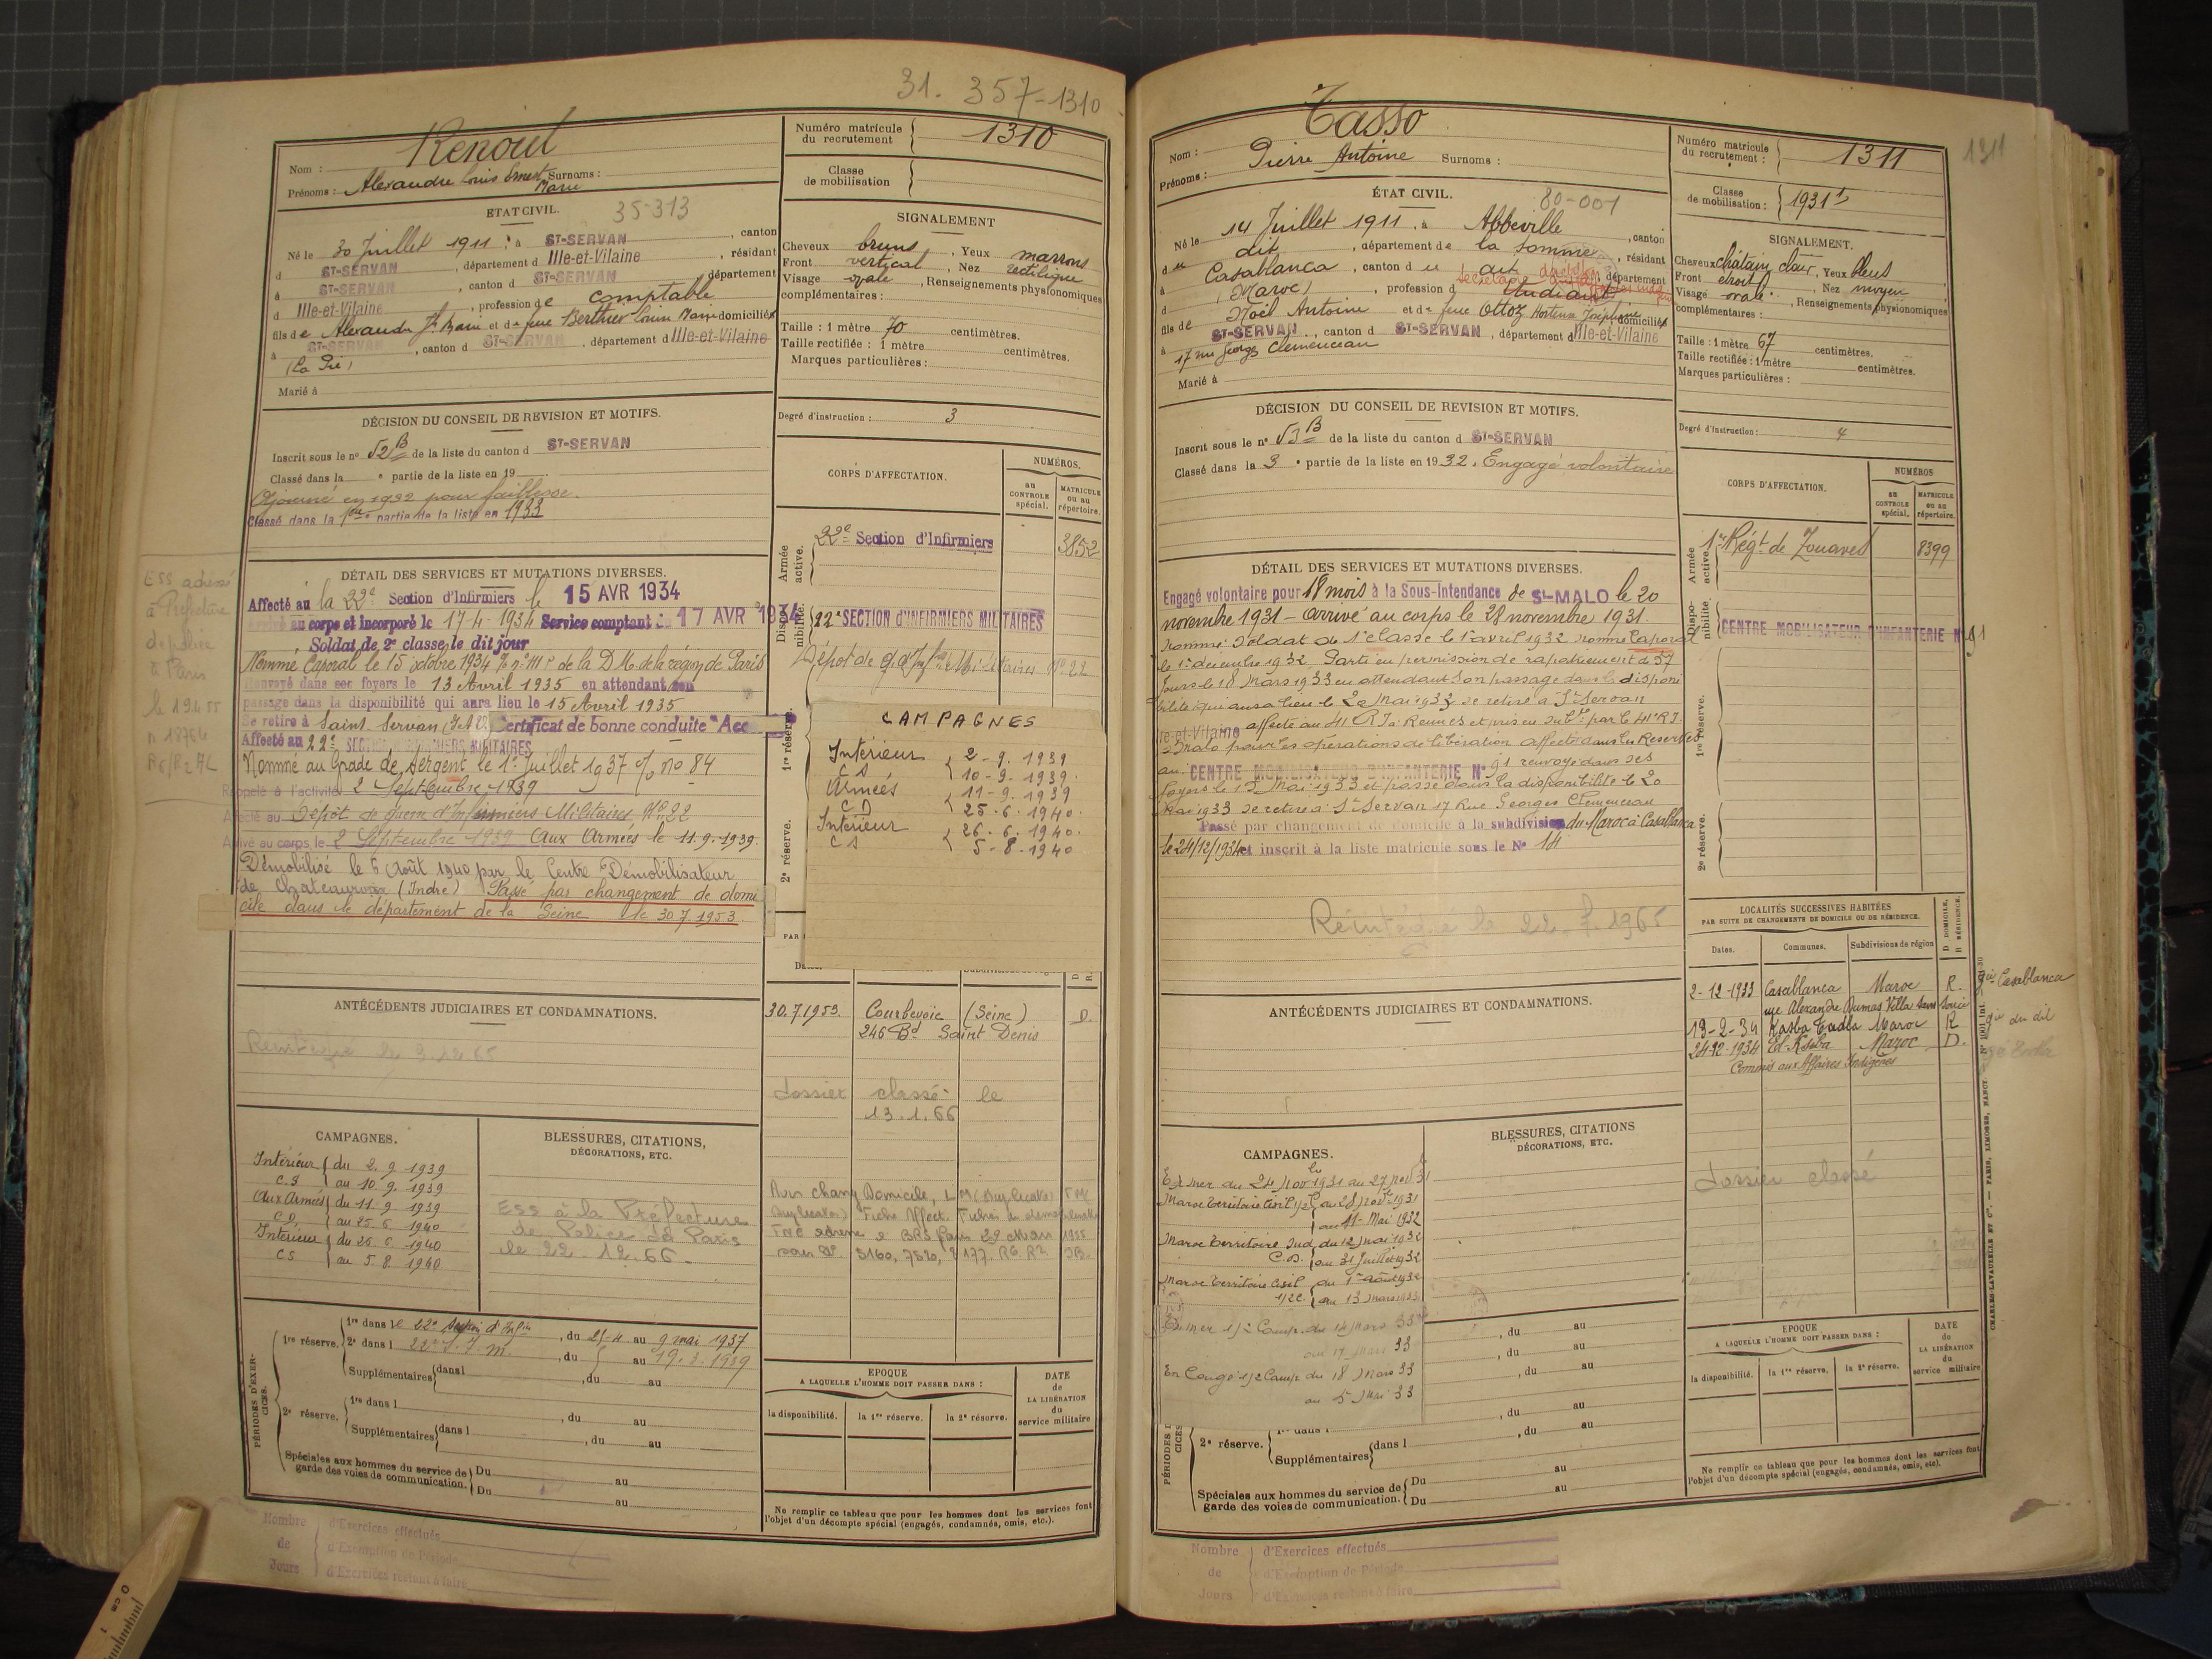 31. 357-1310
Nom : Renoul
Prénoms : Alexandre Louis Ernest Surnoms :
Marie
ETAT CIVIL.
35-313
Né le 30 Juillet 1911 : à ST-SERVAN , canton
d ST-SERVAN , département d Ille-et-Vilaine , résidant
à ST-SERVAN , canton d ST-SERVAN , département
d Ille-et-Vilaine , profession de comptable
fils de Alexandre et de feue Berthier Louise Marie domiciliés
à ST-SERVAN , canton d ST-SERVAN , département d Ille-et-Vilaine
Marié à
Numéro matricule du recrutement { 1310
Classe de mobilisation {
SIGNALEMENT
Cheveux bruns , Yeux marrons
Front vertical , Nez rectiligne
Visage ovale , Renseignements physionomiques
complémentaires :
Taille : 1 mètre 70 centimètres.
Taille rectifiée : 1 mètre centimètres.
Marques particulières :
Degré d'instruction : 3
DÉCISION DU CONSEIL DE REVISION ET MOTIFS.
Inscrit sous le n° 52 B de la liste du canton d ST-SERVAN
Classé dans la e partie de la liste en 19
Ajourné en 1932 pour faiblesse.
Classé dans la 1ère partie de la liste en 1933
CORPS D'AFFECTATION.
NUMÉROS.
au CONTROLE spécial.
MATRICULE ou au répertoire.
Armée active.
22e Section d'Infirmiers 3852
Disponibilité.
22e SECTION d'INFIRMIERS MILITAIRES
1re réserve.
2e réserve.
DÉTAIL DES SERVICES ET MUTATIONS DIVERSES.
Affecté au la 22e Section d'Infirmiers le 15 AVR 1934
Arrivé au corps et incorporé le 17-4-1934 Service comptant du 17 AVR 1934
Soldat de 2e classe le dit jour
Nommé Caporal le 15 octobre 1934 de la D.M. de la région de Paris
Renvoyé dans ses foyers le 13 Avril 1935 en attendant son
passage dans la disponibilité qui aura lieu le 15 Avril 1935
Se retire à Saint-Servan (I et V) Certificat de bonne conduite "Acc
Affecté au 22e SECTION INFIRMIERS MILITAIRES
Nommé au Grade de Sergent le 1er Juillet 1937 no 84
Rappelé à l'activité 2 Septembre 1939
Affecté au Dépôt de guerre d'Infirmiers Militaires No 22
Arrivé au corps le 2 Septembre 1939 Aux Armées le 11.9.1939.
Démobilisé le 6 Août 1940 par le Centre Démobilisateur
de Chateauroux (Indre) Passé par changement de domi
cile dans le département de la Seine le 30.7.1953.
ESS adressé
à Préfecture
de police
à Paris
le 19.4.55
CAMPAGNES
Intérieur { 2-9-1939
C S { 10-9-1939
Armées { 11-9-1939
C D { 25-6-1940
Intérieur { 26-6-1940
C S { 5-8-1940
ANTÉCÉDENTS JUDICIAIRES ET CONDAMNATIONS.
30.7.1953. Courbevoie (Seine) D.
246 Bd Saint Denis
dossier classé le
13.1.66
CAMPAGNES.
Intérieur { du 2. 9 1939
C.S { au 10. 9. 1939
Aux Armées { du 11. 9 1939
C D { au 25. 6 1940
Intérieur { du 26. 6 1940
C S { au 5. 8. 1940
BLESSURES, CITATIONS, DÉCORATIONS, ETC.
ESS à la Préfecture
de Police de Paris
le 22.12.66
PÉRIODES D'EXERCICES.
1re réserve. { 1re dans le 22e Section d'Infir , du 21-4 au 9 mai 1937
2e dans l 22e S.I.M. , du au 19.3.1939
Supplémentaires { dans l , du au
2e réserve. { 1re dans l , du au
Supplémentaires { dans l , du au
Spéciales aux hommes du service de garde des voies de communication. { Du au
Du au
EPOQUE A LAQUELLE L'HOMME DOIT PASSER DANS :
la disponibilité. la 1re réserve. la 2e réserve.
DATE de LA LIBÉRATION du service militaire
Ne remplir ce tableau que pour les hommes dont les services font
l'objet d'un décompte spécial (engagés, condamnés, omis, etc.).
Nombre de Jours { d'Exercices effectués
d'Exemption de Période
d'Exercices restant à faire
1311
Nom : Tasso
Prénoms : Pierre Antoine Surnoms :
Numéro matricule du recrutement : { 1311
Classe de mobilisation : { 1931
ÉTAT CIVIL.
80-001
Né le 14 Juillet 1911 , à Abbeville , canton
d u dit , département de la Somme , résidant
à Casablanca , canton d u dit , département
(Maroc) profession d Etudiant
fils de Noël Antoine et de feue Ottoz Hortense Joséphine domiciliés
à ST-SERVAN , canton d ST-SERVAN , département d Ille-et-Vilaine
17 rue Georges Clemenceau
Marié à
SIGNALEMENT.
Cheveux châtain clair, Yeux bleus
Front étroit , Nez moyen
Visage ovale , Renseignements physionomiques
complémentaires :
Taille : 1 mètre 67 centimètres.
Taille rectifiée : 1 mètre centimètres.
Marques particulières :
Degré d'instruction : 4
DÉCISION DU CONSEIL DE REVISION ET MOTIFS.
Inscrit sous le n° 53 B de la liste du canton d ST-SERVAN
Classé dans la 3 e partie de la liste en 1932. Engagé volontaire
CORPS D'AFFECTATION.
NUMÉROS
au CONTROLE spécial.
MATRICULE ou au répertoire.
Armée active.
1er Régt de Zouaves 8399
Disponibilité.
CENTRE MOBILISATEUR D'INFANTERIE N° 91
1re réserve.
2e réserve.
DÉTAIL DES SERVICES ET MUTATIONS DIVERSES.
Engagé volontaire pour 18 mois à la Sous-Intendance de St-MALO le 20
novembre 1931 - arrivé au corps le 28 novembre 1931.
Nommé Soldat de 1e classe le 1er avril 1932 nommé Caporal
le 1er décembre 1932. Parti en permission de rapatriement de 57
jours le 18 Mars 1933 en attendant son passage dans la disponi
bilité qui aura lieu le 20 Mai 1933 se retire à St Servan
Ille-et-Vilaine affecté au 41 R.I. à Rennes et pris en par le 41e R.I.
St Malo pour les opérations de libération affecté dans les Réserves
au CENTRE MOBILISATEUR D'INFANTERIE N° 91 renvoyé dans ses
foyers le Mai 1933 et passé dans la disponibilité le 20
Mai 1933 se retire à St Servan 17 Rue Georges Clemenceau
Passé par changement de domicile à la subdivision du Maroc à Casablanca
le 24/12/1934 et inscrit à la liste matricule sous le N° 14
Réintégré le 22. 1965
ANTÉCÉDENTS JUDICIAIRES ET CONDAMNATIONS.
LOCALITÉS SUCCESSIVES HABITÉES
PAR SUITE DE CHANGEMENTS DE DOMICILE OU DE RÉSIDENCE.
D DOMICILE, R RÉSIDENCE.
Dates. Communes. Subdivisions de région
2-12-1933 Casablanca Maroc R. Casablanca
rue Alexandre Dumas Villa Sans Souci
19-2-34 Kasba Tadla Maroc R du dit
24-12-1934 El-Ksiba Maroc D.
Commis aux Affaires Indigènes
dossier classé
CAMPAGNES.
En mer du 24 Nov 1931 au 27 nov 31
Maroc Territoire Civil 1/2 C { du 28 novbre 1931
au 11 Mai 1932
Maroc Territoire Sud { du 12 mai 1932
C.D. { au 31 Juillet 1932
Maroc Territoire Civil { du 1er août 1932
1/2 C. { au 13 Mars 1933
En mer 1/2 Camp. du 14 Mars 33
au 17 Mars 33
En Congé 1/2 Camp du 18 Mars 33
au 5 Mai 33
BLESSURES, CITATIONS DÉCORATIONS, ETC.
, du au
, du au
, du au
, du au
, du au
2e réserve. { Supplémentaires { dans l
Spéciales aux hommes du service de garde des voies de communication. { Du au
Du au
EPOQUE A LAQUELLE L'HOMME DOIT PASSER DANS :
la disponibilité. la 1re réserve. la 2e réserve.
DATE de LA LIBÉRATION du service militaire
Ne remplir ce tableau que pour les hommes dont les services font
l'objet d'un décompte spécial (engagés, condamnés, omis, etc).
CHARLES-LAVAUZELLE ET Cie. — PARIS, LIMOGES, NANCY
Nombre de Jours { d'Exercices effectués
d'Exemption de Période
d'Exercices restant à faire